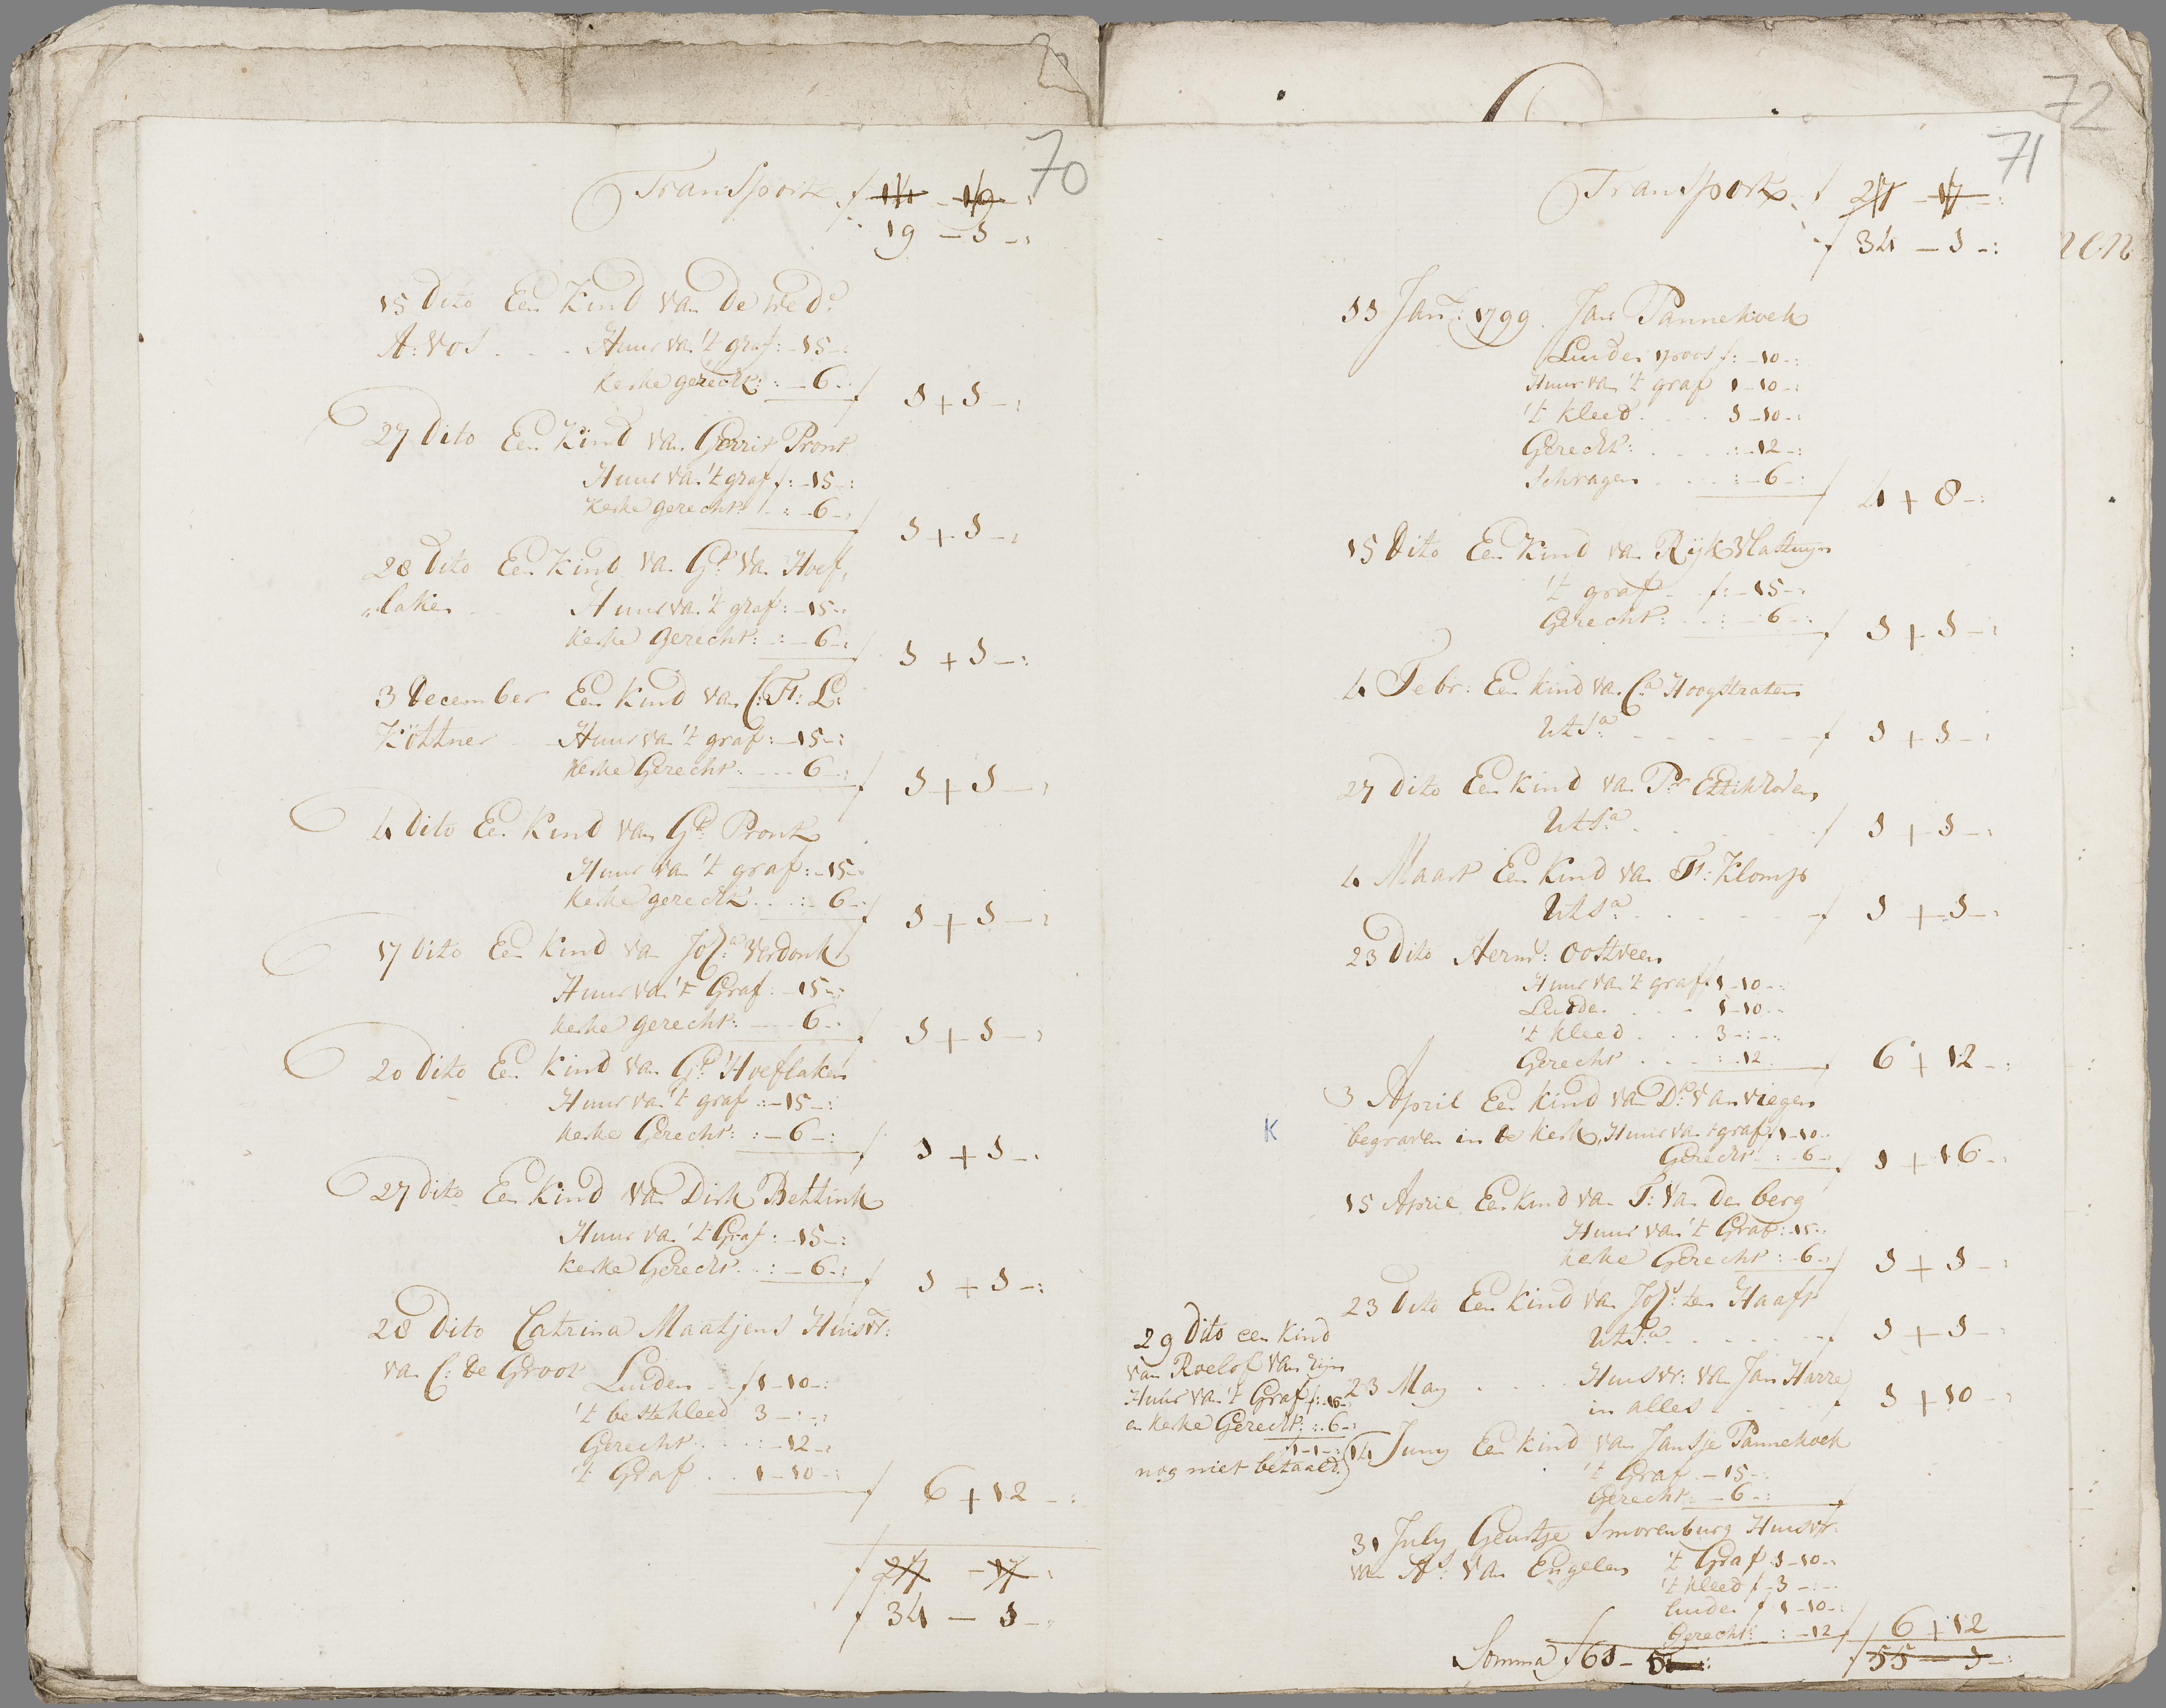 70
Transport f 14 - 19 -:
19 - 1 -:
15 Dito Een Kind van De Wed.e
A: Vos . . . Huur van 't graf: -15-:
Kerke gerecht: :-6-: f 1+1-:
27 Dito Een Kind van Gerrit Pront
Huur van 't graf f:-15-:
Kerke gerecht: :-6-: f 1+1-:
28 Dito Een Kind van G.t van Hoef,
„laken . . Huur van 't graf: -15-:
Kerke gerecht: :-6-: f 1+1-:
3 December Een Kind van C: F: L:
Köttner . . Huur van 't graf: -15-:
Kerke Gerecht: . . . 6-: f 1+1-:
4 Dito Een Kind van G.t Pront
Huur van 't graf: -15-:
Kerke gerecht . . :-6-: f 1+1-:
17 Dito Een Kind van Joh.s Verdonk
Huur van 't Graf: -15-:
Kerke gerecht: . . . 6-: f 1+1-:
20 Dito Een Kind van G.t Hoeflaken
Huur van 't graf :-15-:
Kerke Gerecht: :-6-: f 1+1-:
27 dito Een Kind van Dirk Bettink
Huur van 't Graf: -15-:
Kerke Gerecht. . :-6-: f 1+1-:
28 Dito Catrina Maatjens Huisvr:
van C: De Groot Luiden . . f 1-10-:
't beste kleed 3-:-:
Gerecht . . . :-12-:
't Graf . . 1-10-: f 6+12-:
f 27 - 17 -:
f 34 - 1 -:
72
71
Transport f 27 - 17 -:
f 34 - 1 -:
nen
11 Jan: 1799. Jan Pannekoek
Luiden f:-10-:
Huur van 't graf 1-10-:
't kleed . . . 1-10-:
Gerecht: . . . :-12-:
Schragen . . . :-6-: f 4+8-:
15 Dito Een Kind van Rijk Vlastuyn
't graf . . f:-15-:
Gerecht: . . :-6-: f 1+1-:
4 Febr: Een Kind van C.s Hoogstraten
Ut S.a . . . . f 1+1-:
27 dito Een Kind van P.r Ettikhoven
Ut S.a . . . . f 1+1-:
4 Maart Een Kind van F: Klomp
Ut S.a . . . . f 1+1-:
23 Dito Herm: Oostveen
Huur van 't graf f 1-10-:
Luiden . . . 1-10-:
't kleed . . . 3-:-:
Gerecht . . . :-12 f 6+12-:
3 April Een kind van D.k van viegen
K
begraven in de kerk, Huur van 't graf f 1-10-:
Gerecht :-6-: f 1+16-:
15 April Een kind van T: van den berg
Huur van 't Graf:-15-:
kerke Gerecht :-6-: f 1+1-:
23 Dito Een Kind van Joh.s ten Haaft
Ut S.a . . . . f 1+1-:
29 Dito een kind
van Roelof van Zijn
Huur van 't Graf f:-15-:
en kerke Gerecht: :-6-:
1-1-:
nog niet betaald.
23 May . . . Huisvr: van Jan Harre
in alles . . . f 1+10-:
14 Juny Een kind van Jansje Pannekoek
't Graf -15-:
Gerecht: -6-: f
31 July Geurtje Smorenburg Huisvr:
van A.s van Engelen 't Graf 1-10-:
't kleed f 3-:-:
luiden f 1-10-:
Gerecht: :-12 f 6+12
Somma f 61 - 5
f 55 - 1-: